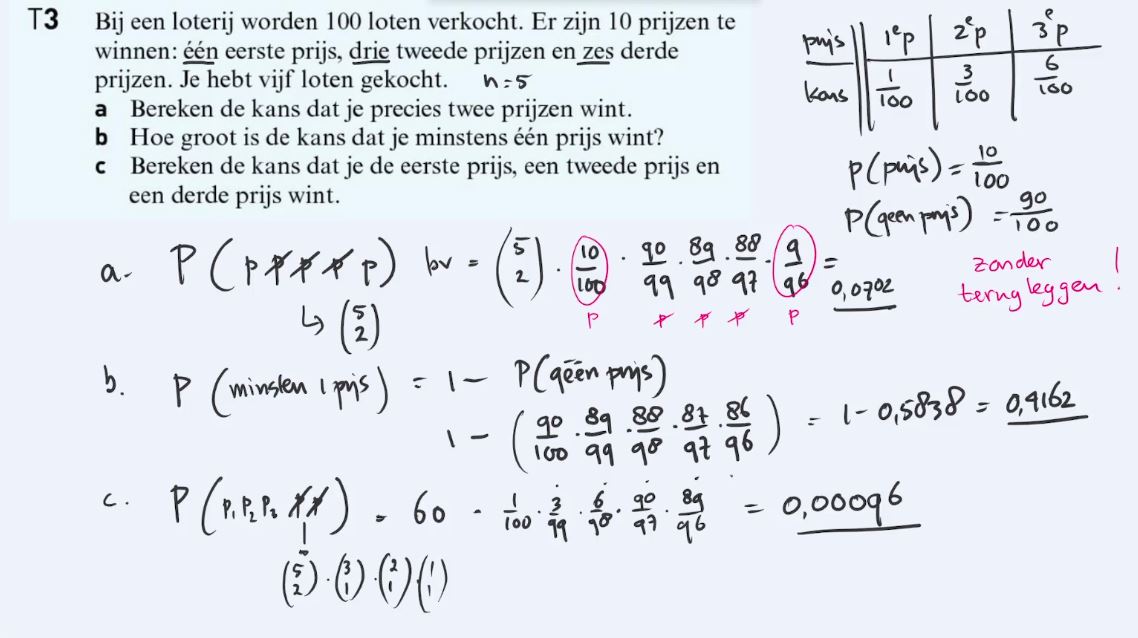 T3 Bij een loterij worden 100 loten verkocht. Er zijn 10 prijzen te
winnen: één eerste prijs, drie tweede prijzen en zes derde
prijzen. Je hebt vijf loten gekocht. n=5
a Bereken de kans dat je precies twee prijzen wint.
b Hoe groot is de kans dat je minstens één prijs wint?
c Bereken de kans dat je de eerste prijs, een tweede prijs en
een derde prijs wint.
prijs | 1ᵉp | 2ᵉp | 3ᵉp
kans | 1/100 | 3/100 | 6/100
P(prijs) = 10/100
P(geen prijs) = 90/100
a. P(p p̸ p̸ p̸ p) bv = (5 2) · 10/100 · 90/99 · 89/98 · 88/97 · 9/96 = 0,0702
p p̸ p̸ p̸ p
↳ (5 2)
zonder
terugleggen!
b. P(minsten 1 prijs) = 1 − P(géén prijs)
1 − (90/100 · 89/99 · 88/98 · 87/97 · 86/96) = 1 − 0,5838 = 0,4162
c. P(P₁ P₂ P₃ p̸ p̸) = 60 · 1/100 · 3/99 · 6/98 · 90/97 · 89/96 = 0,00096
(5 2) · (3 1) · (2 1) (1 1)